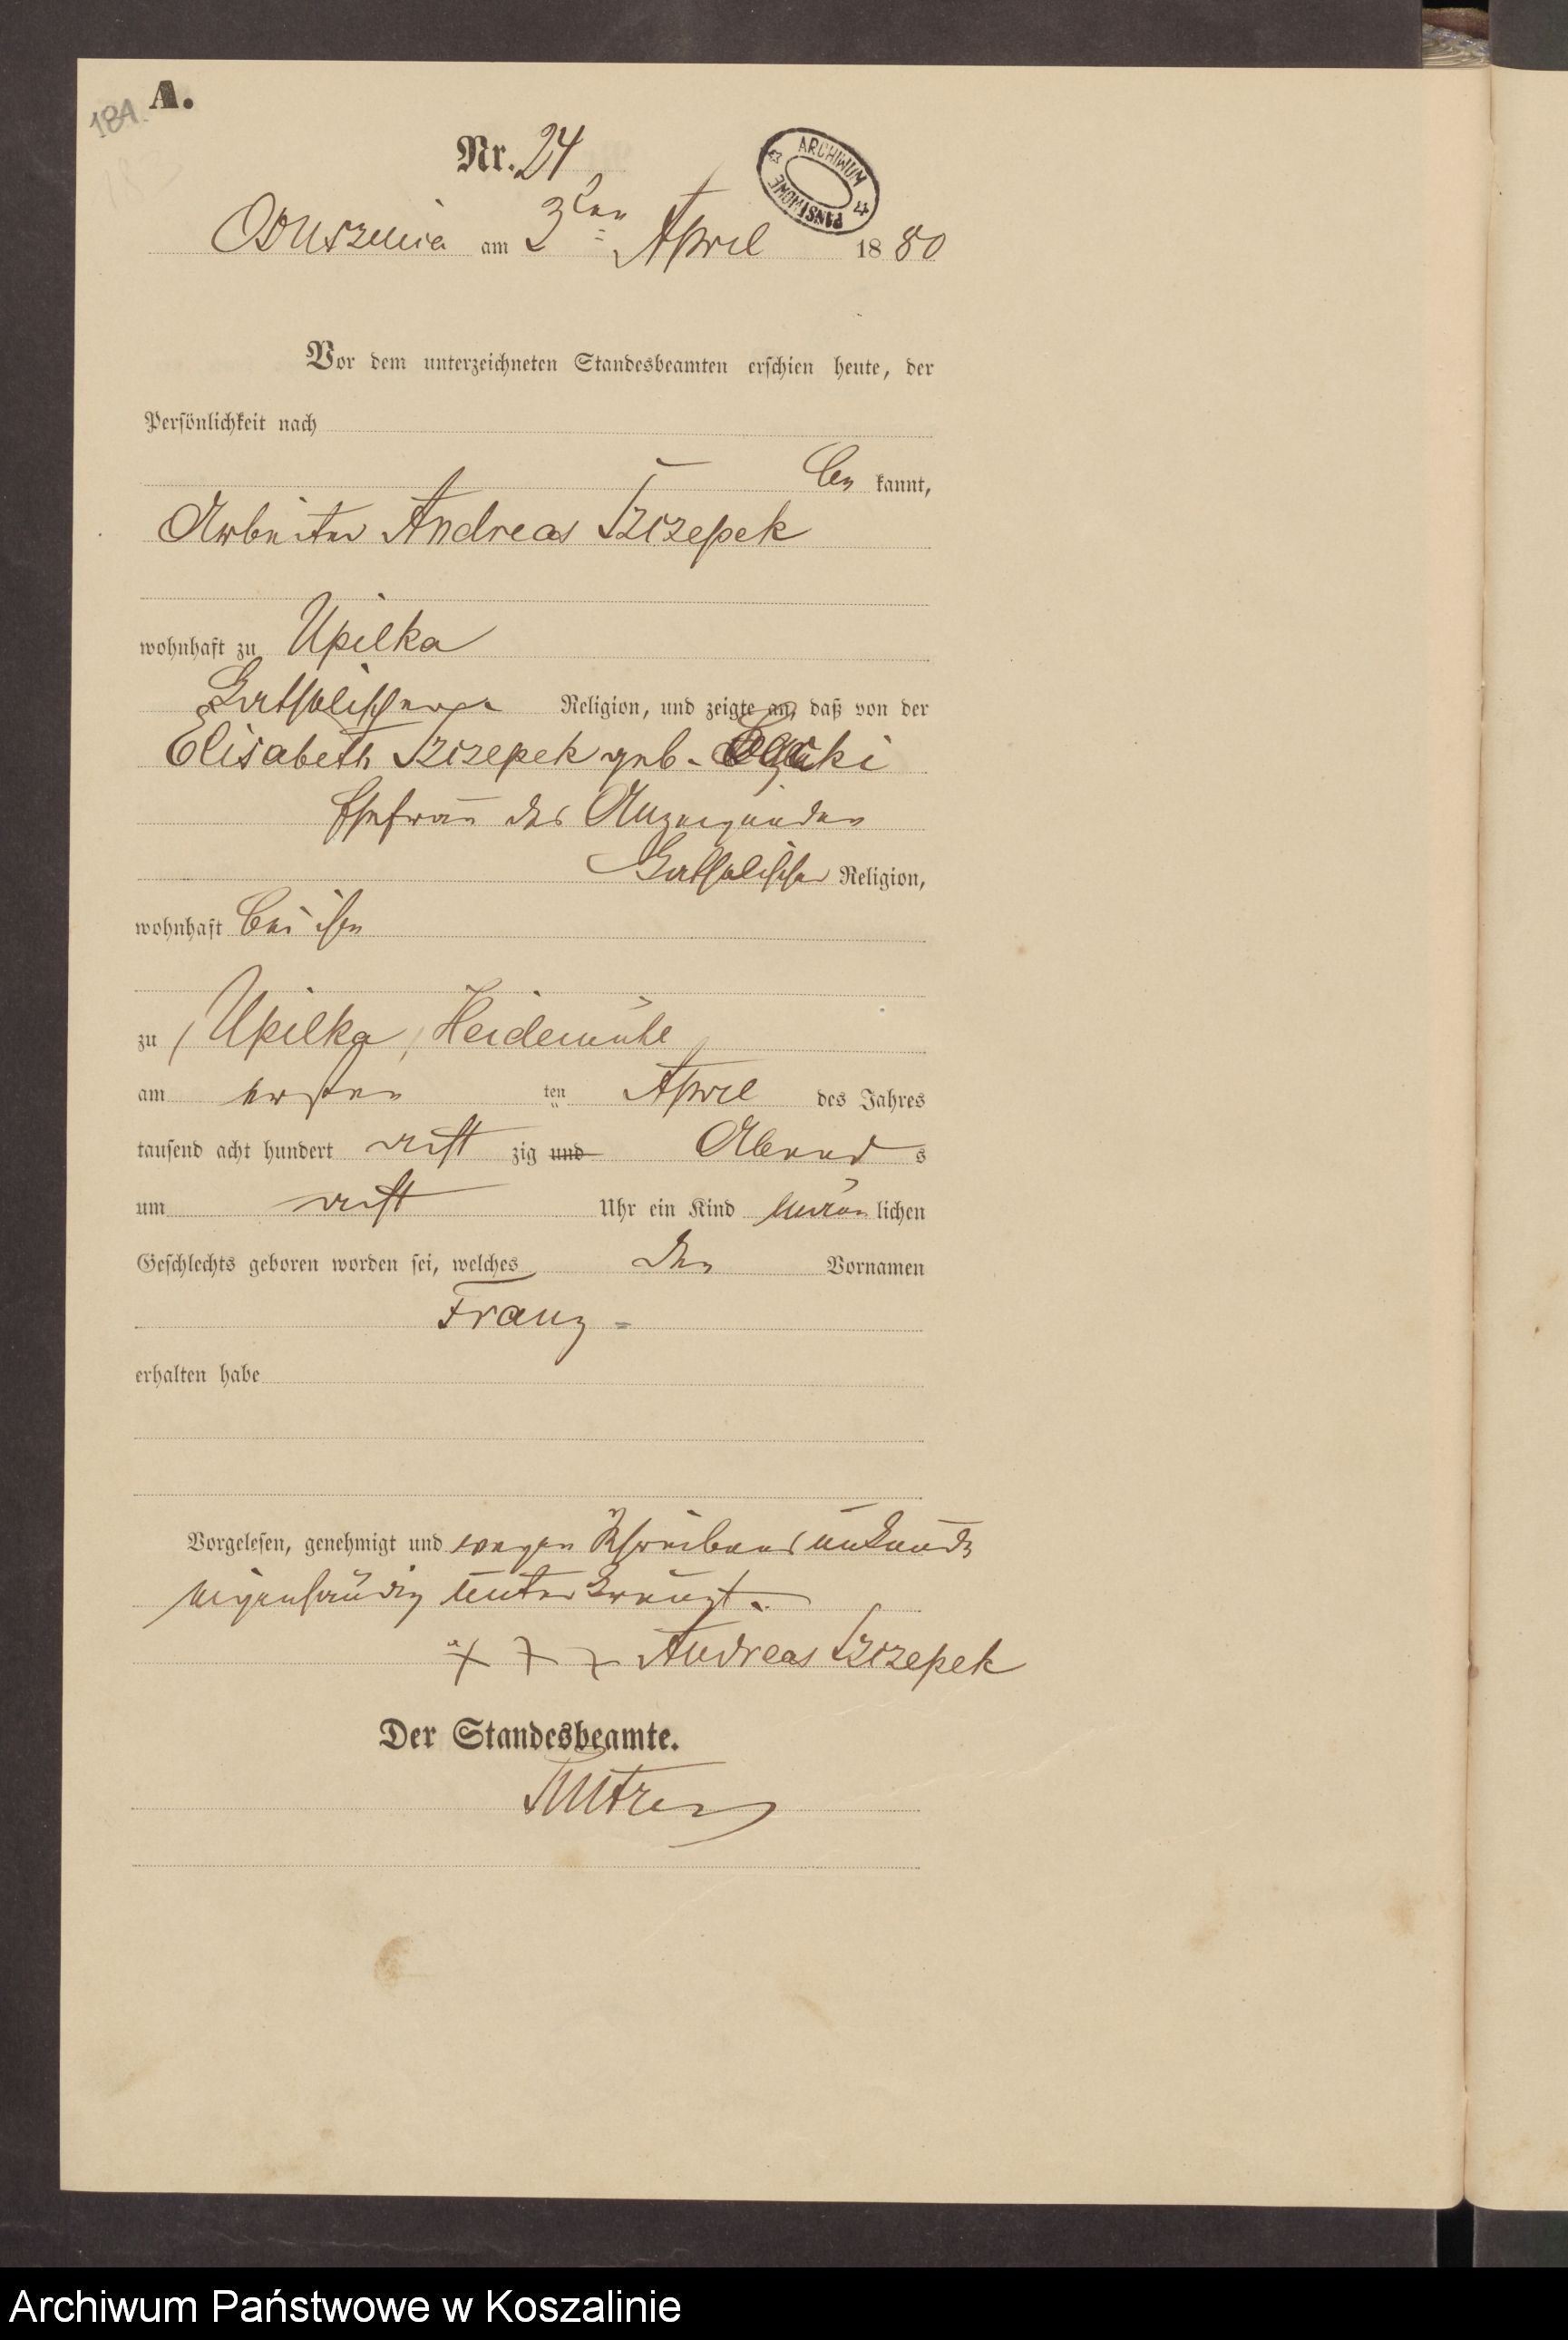 184.
A.
Nr. 24
ARCHIWUM PAŃSTWOWE
Ossuszniça am 3ten April 1880
Vor dem unterzeichneten Standesbeamten erschien heute, der
Persönlichkeit nach
be kannt,
Arbeiter Andreas Szczepek
wohnhaft zu Upilka
katholischer Religion, und zeigte an, daß von der
Elisabeth Szczepek geb.
Ehefrau des Anzeigenden
katholischer Religion,
wohnhaft bei ihm
zu (Upilka) Heidemühl
am ersten ten April des Jahres
tausend acht hundert acht zig und Abend s
um acht Uhr ein Kind män lichen
Geschlechts geboren worden sei, welches den Vornamen
Franz =
erhalten habe
Vorgelesen, genehmigt und wegen Schreibens unkunde
eigenhändig unterkreuzt.
+ + + Andreas Szczepek
Der Standesbeamte.
Archiwum Państwowe w Koszalinie